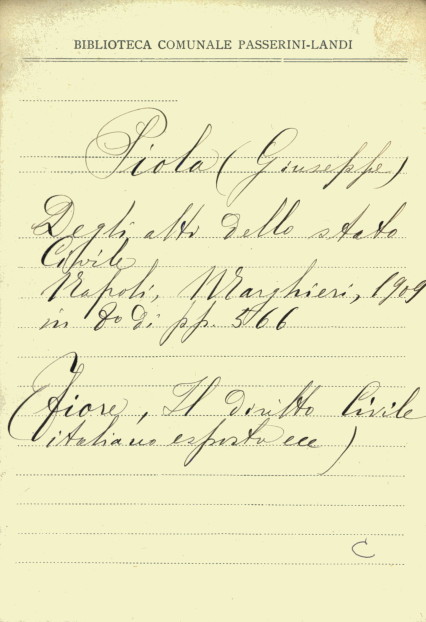 BIBLIOTECA COMUNALE PASSERINI-LANDI
Piola (Giuseppe)
Degli atti dello stato
Civile
Napoli, Marghieri, 1909
in 8o di pp. 566
(Fiore, Il diritto Civile
italiano esposto ecc)
C